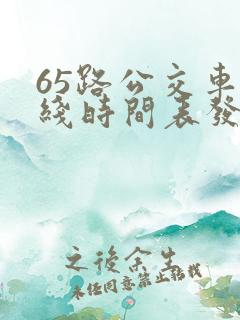 65路公交車
綫時間表發
之後余生
未經同意禁止轉載